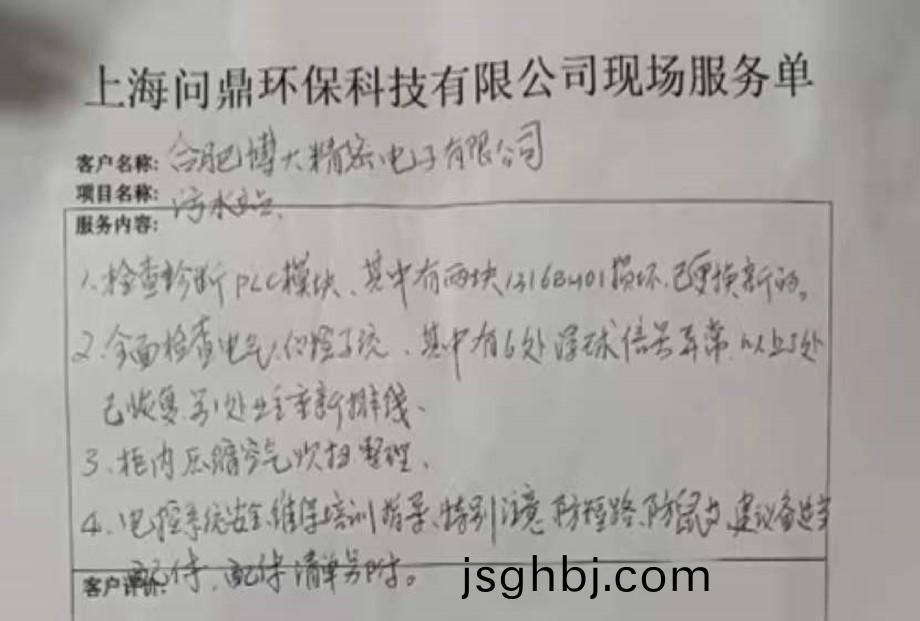 上海问鼎环保科技有限公司现场服务单
客户名称: 合肥博大精密电子有限公司
项目名称: 污水站
服务内容:
1、检查诊断PLC模块、其中有两块 损坏、已更换新的。
2、全面检查电气 系统、其中有6处浮球信号异常、以上5处
已恢复、另1处业主重新排线、
3、柜内压缩空气吹扫整理、
4、电控系统安全、维保培训指导、特别注意防短路、防鼠 、建议备适当
配件、配件清单另附。
客户评价:
jsghbj.com